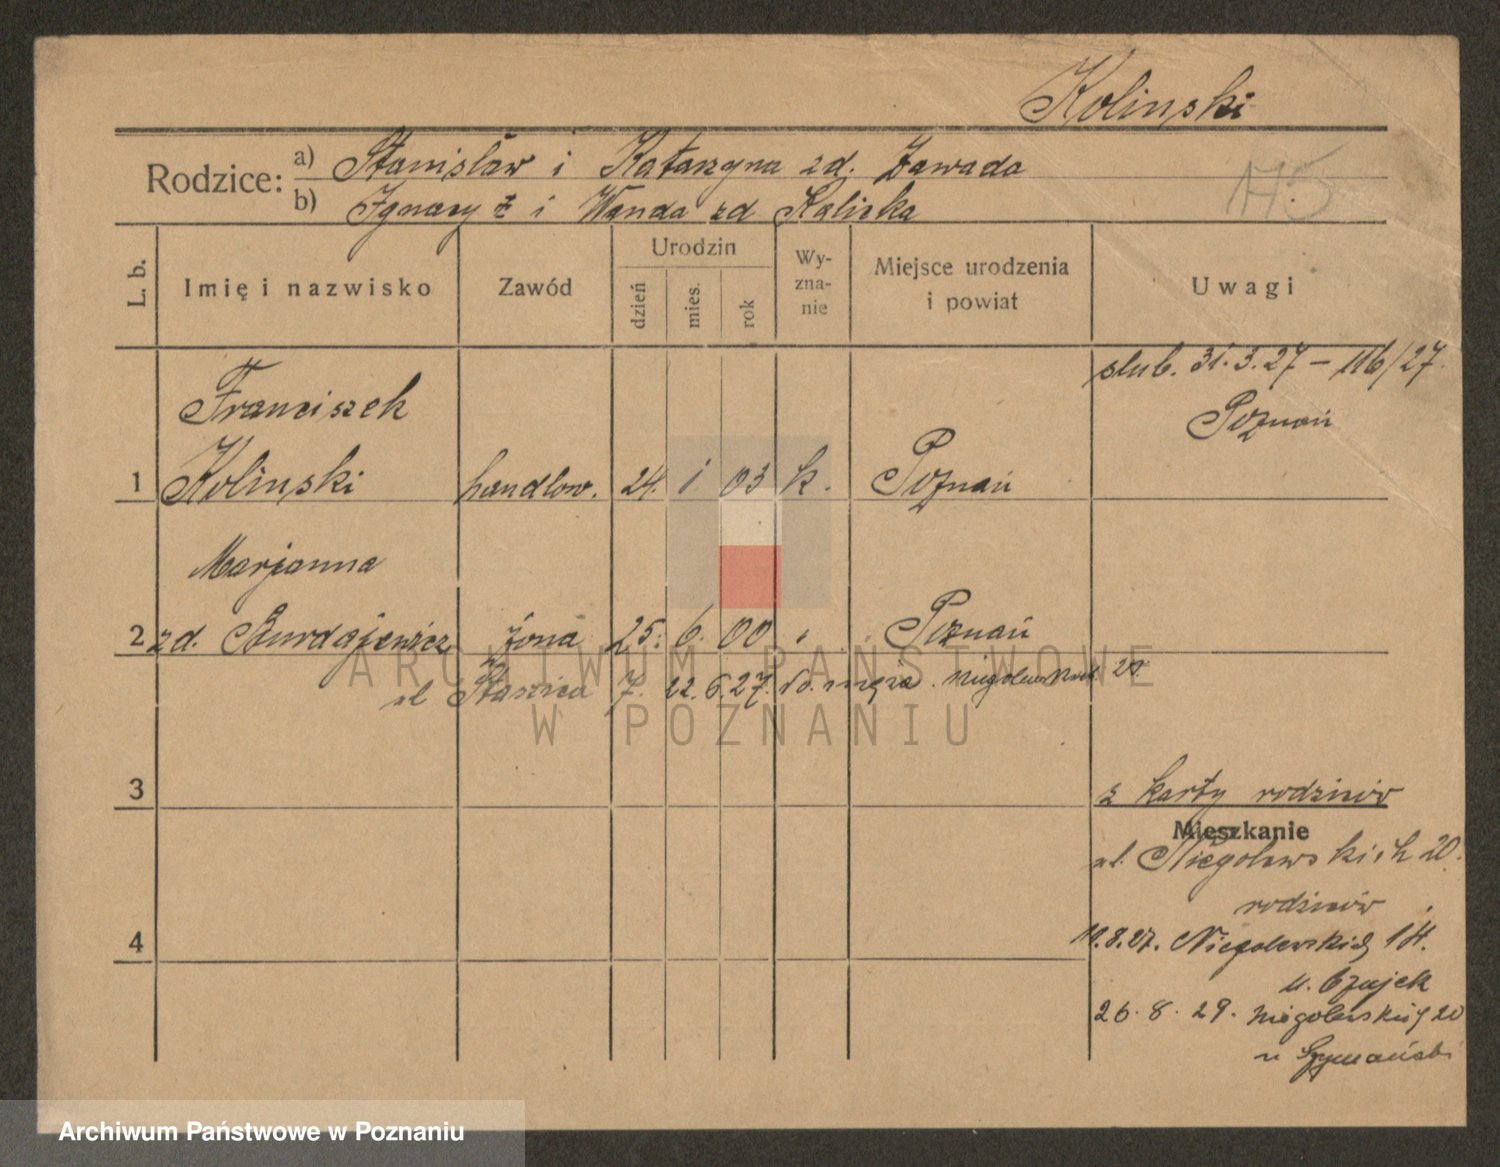 Kolinski
Rodzice: a) Stanisław i Katarzyna zd. Zawada
b) Ignacy ż i Wanda zd Kaliska
H5
L. b. Imię i nazwisko Zawód Urodzin dzień mies. rok Wyznanie Miejsce urodzenia i powiat Uwagi
ślub. 31.3.27 – 116/27.
Poznań
Franciszek
1 Kolinski handlow. 24. 1 03 k. Poznań
Marjanna
2 zd. Burdajewicz żona 25. 6. 00 „ Poznań
ul Staszica 7. 22.6.27. do męża. Niegolewskich 20.
ARCHIWUM PAŃSTWOWE
W POZNANIU
3 z karty rodziców
Mieszkanie
ul. Niegolewskich 20.
rodziców
4 19.8.27. Niegolewskich 14.
u. Czajek
26. 8. 29. Niegolewskich 20
u Szymański
Archiwum Państwowe w Poznaniu